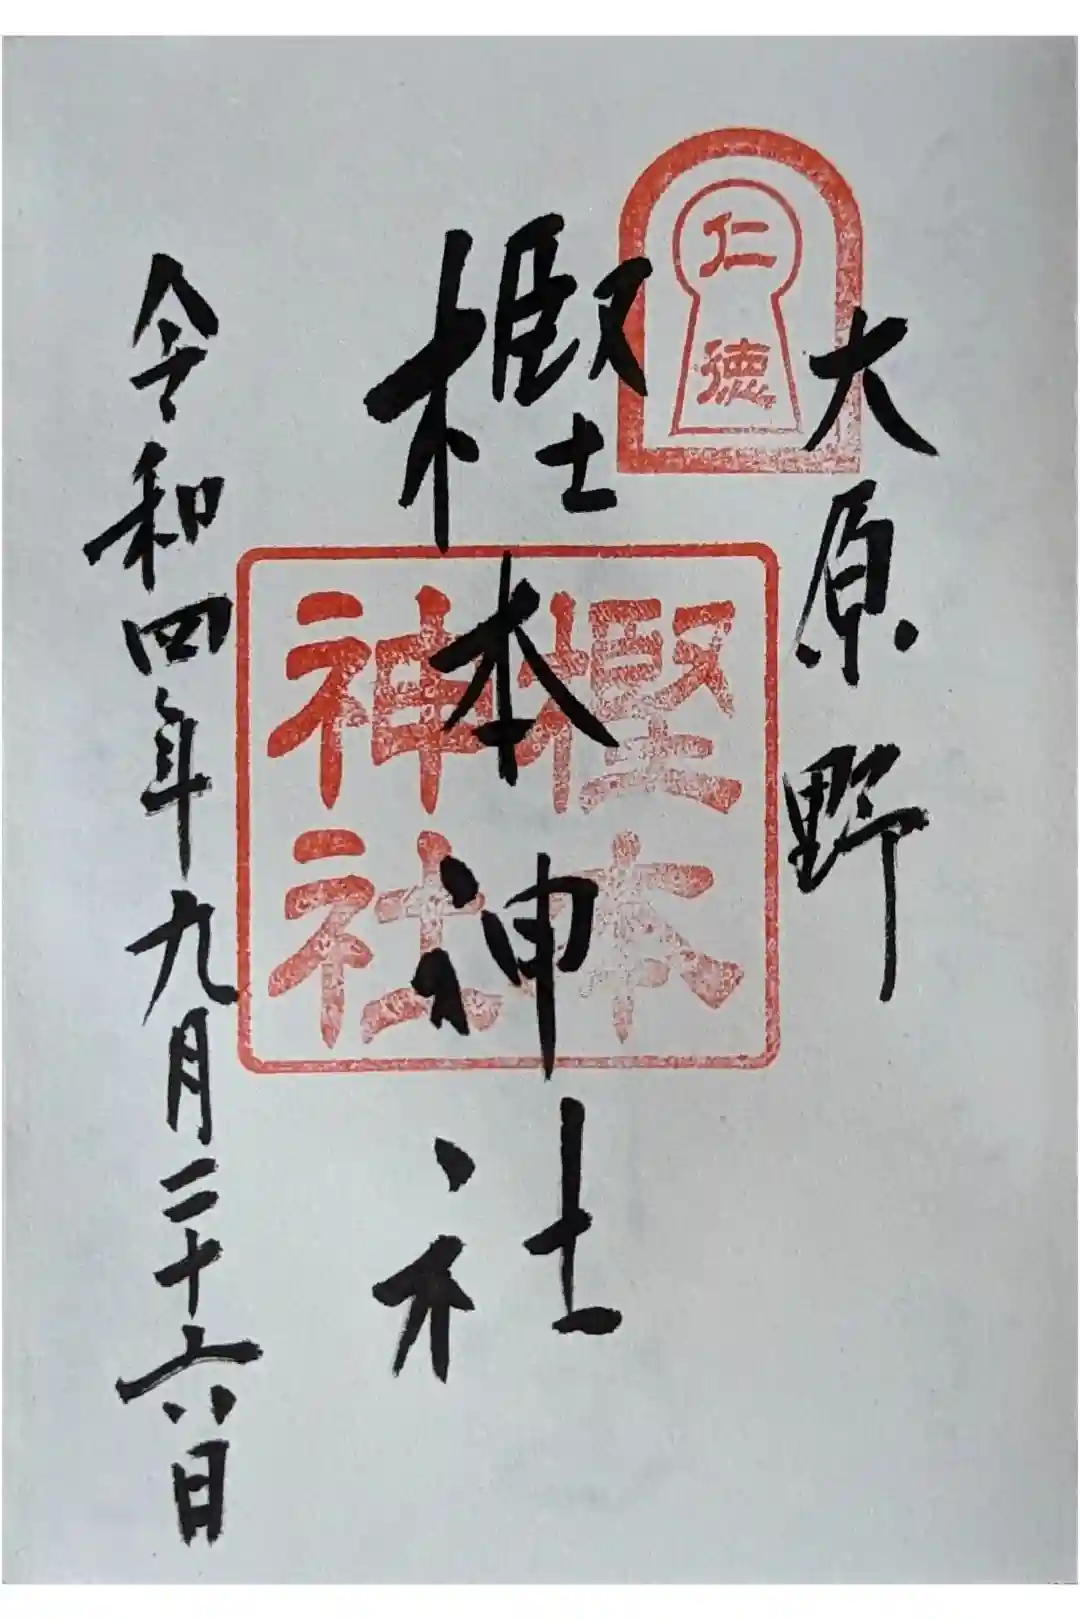 大原野
仁徳
樫本神社
樫本
神社
令和四年九月二十六日